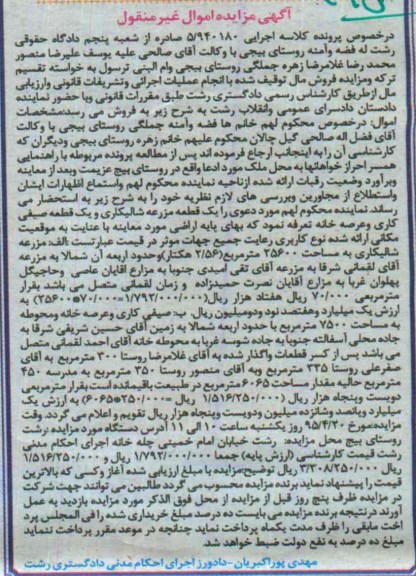 آگهی مزایده اموال غیر منقول
درخصوص پرونده کلاسه اجرایی ۵/۹۴۰۱۸۰ صادره از شعبه پنجم دادگاه حقوقی
رشت له فضه وآمنه روستای بیجی با وکالت آقای صالحی علیه یوسف علیرضا منصور
محمد رضا غلامرضا زهره جملگی روستای بیجی وام البنی ترسول به خواسته تقسیم
ترکه ومزایده فروش مال توقیف شده با انجام عملیات اجرائی وتشریفات قانونی وارزیابی
مال ازطریق کارشناس رسمی دادگستری رشت طبق مقررات قانونی وبا حضور نماینده
دادستان دادسرای عمومی وانقلاب رشت به شرح زیر به فروش می رسد:مشخصات
اموال: درخصوص محکوم لهم خانم ها فضه وآمنه جملگی روستای بیجی با وکالت
آقای فضل اله صالحی گیل چالان محکوم علیهم خانم زهره روستای بیجی ودیگران که
کارشناسی آن را به اینجانب ارجاع فرموده اند پس از مطالعه پرونده مربوطه با راهنمایی
همسر احراز خواهانها به محل ملک مورد ادعا واقع در روستای بیج عزیمت وبعد از معاینه
وبرآورد وضعیت رقبات ارائه شده ازناحیه نماینده محکوم لهم واستماع اظهارات ایشان
واستطلاع از مجاورین وبررسی های لازم نظریه خود را به شرح زیر به استحضار می
رساند. نماینده محکوم لهم مورد دعوی را یک قطعه مزرعه شالیکاری و یک قطعه صیفی
کاری وعرصه خانه تعرفه نمود که بهای پایه اراضی مورد معاینه با عنایت به موقعیت
مکانی ارائه شده نوع کاربری رعایت جمیع جهات موثر در قیمت عبارتست :الف: مزرعه
شالیکاری به مساحت ۲۵۶۰۰ مترمربع(۲/۵۶ هکتار)وحدود اربعه آن شمالا به مزرعه
آقای لقمانی شرقا به مزرعه آقای تقی امیدی جنوبا به مزارع اقایان عاصی وحاجیگل
پهلوان غربا به مزارع آقایان نصرت حمیدزاده و زمان لقمانی متصل می باشد بقرار
مترمربعی ۷۰/۰۰۰ ریال هفتاد هزار ریال(۱/۷۹۲/۰۰۰/۰۰۰=۷۰/۰۰۰*۲۵۶۰۰) به
ارزش یک میلیارد وهفتصد نود ودومیلیون ریال. ب: صیفی کاری وعرصه خانه ومحوطه
به مساحت ۷۵۰۰ مترمربع با حدود اربعه شمالا به زمین آقای حسین شریفی شرقا به
جاده محلی آسفالته جنوبا به جاده شوسه غربا به محوطه خانه آقای احمد لقمانی متصل
می باشد پس از کسر قطعات واگذار شده به آقای غلامرضا روستا ۳۰۰ مترمربع به آقای
صفرعلی روستا ۳۳۵ مترمربع وبه آقای منصور روستا ۳۵۰ مترمربع به مدرسه ۴۵۰
مترمربع حالیه مقدار مساحت ۶۰۶۵ مترمربع در طبیعت باقیمانده است بقرار مترمربعی
دویست وپنجاه هزار ریال (۱/۵۱۶/۲۵۰/۰۰۰ ریال =۲۵۰/۰۰۰*۶۰۶۵) به ارزش یک
میلیارد وپانصد وشانزده میلیون ودویست وپنجاه هزار ریال تقویم و اعلام می گردد. وقت
مزایده:مورخ ۹۵/۴/۲۰ روز یکشنبه ساعت ۱۰ الی ۱۱ آدرس دستگاه مورد مزایده: رشت
روستای بیج محل مزایده: رشت خیابان امام خمینی چله خانه اجرای احکام مدنی
رشت قیمت کارشناسی (ارزش پایه) جمعا ۱/۷۹۲/۰۰۰/۰۰۰ ریال و ۱/۵۱۶/۲۵۰/۰۰۰
ریال ۳/۳۰۸/۲۵۰/۰۰۰ ریال توضیح:مزایده با مبلغ ارزیابی شده آغاز وکسی که بالاترین
قیمت را پیشنهاد نماید برنده مزایده محسوب می گردد طالبین می توانند جهت شرکت
در مزایده ظرف پنج روز قبل از مزایده از محل فوق الذکر مورد مزایده بازدید به عمل
آورند درنتیجه برنده مزایده می بایست ده درصد مبلغ خریداری شده را فی المجلس پرداخت
مابقی را ظرف مدت یکماه پرداخت نماید چنانچه در موعد مقرر پرداخت ننماید
مبلغ ده درصد به نفع دولت ضبط خواهد شد.
مهدی پوراکبریان -دادورز اجرای احکام مدنی دادگستری رشت